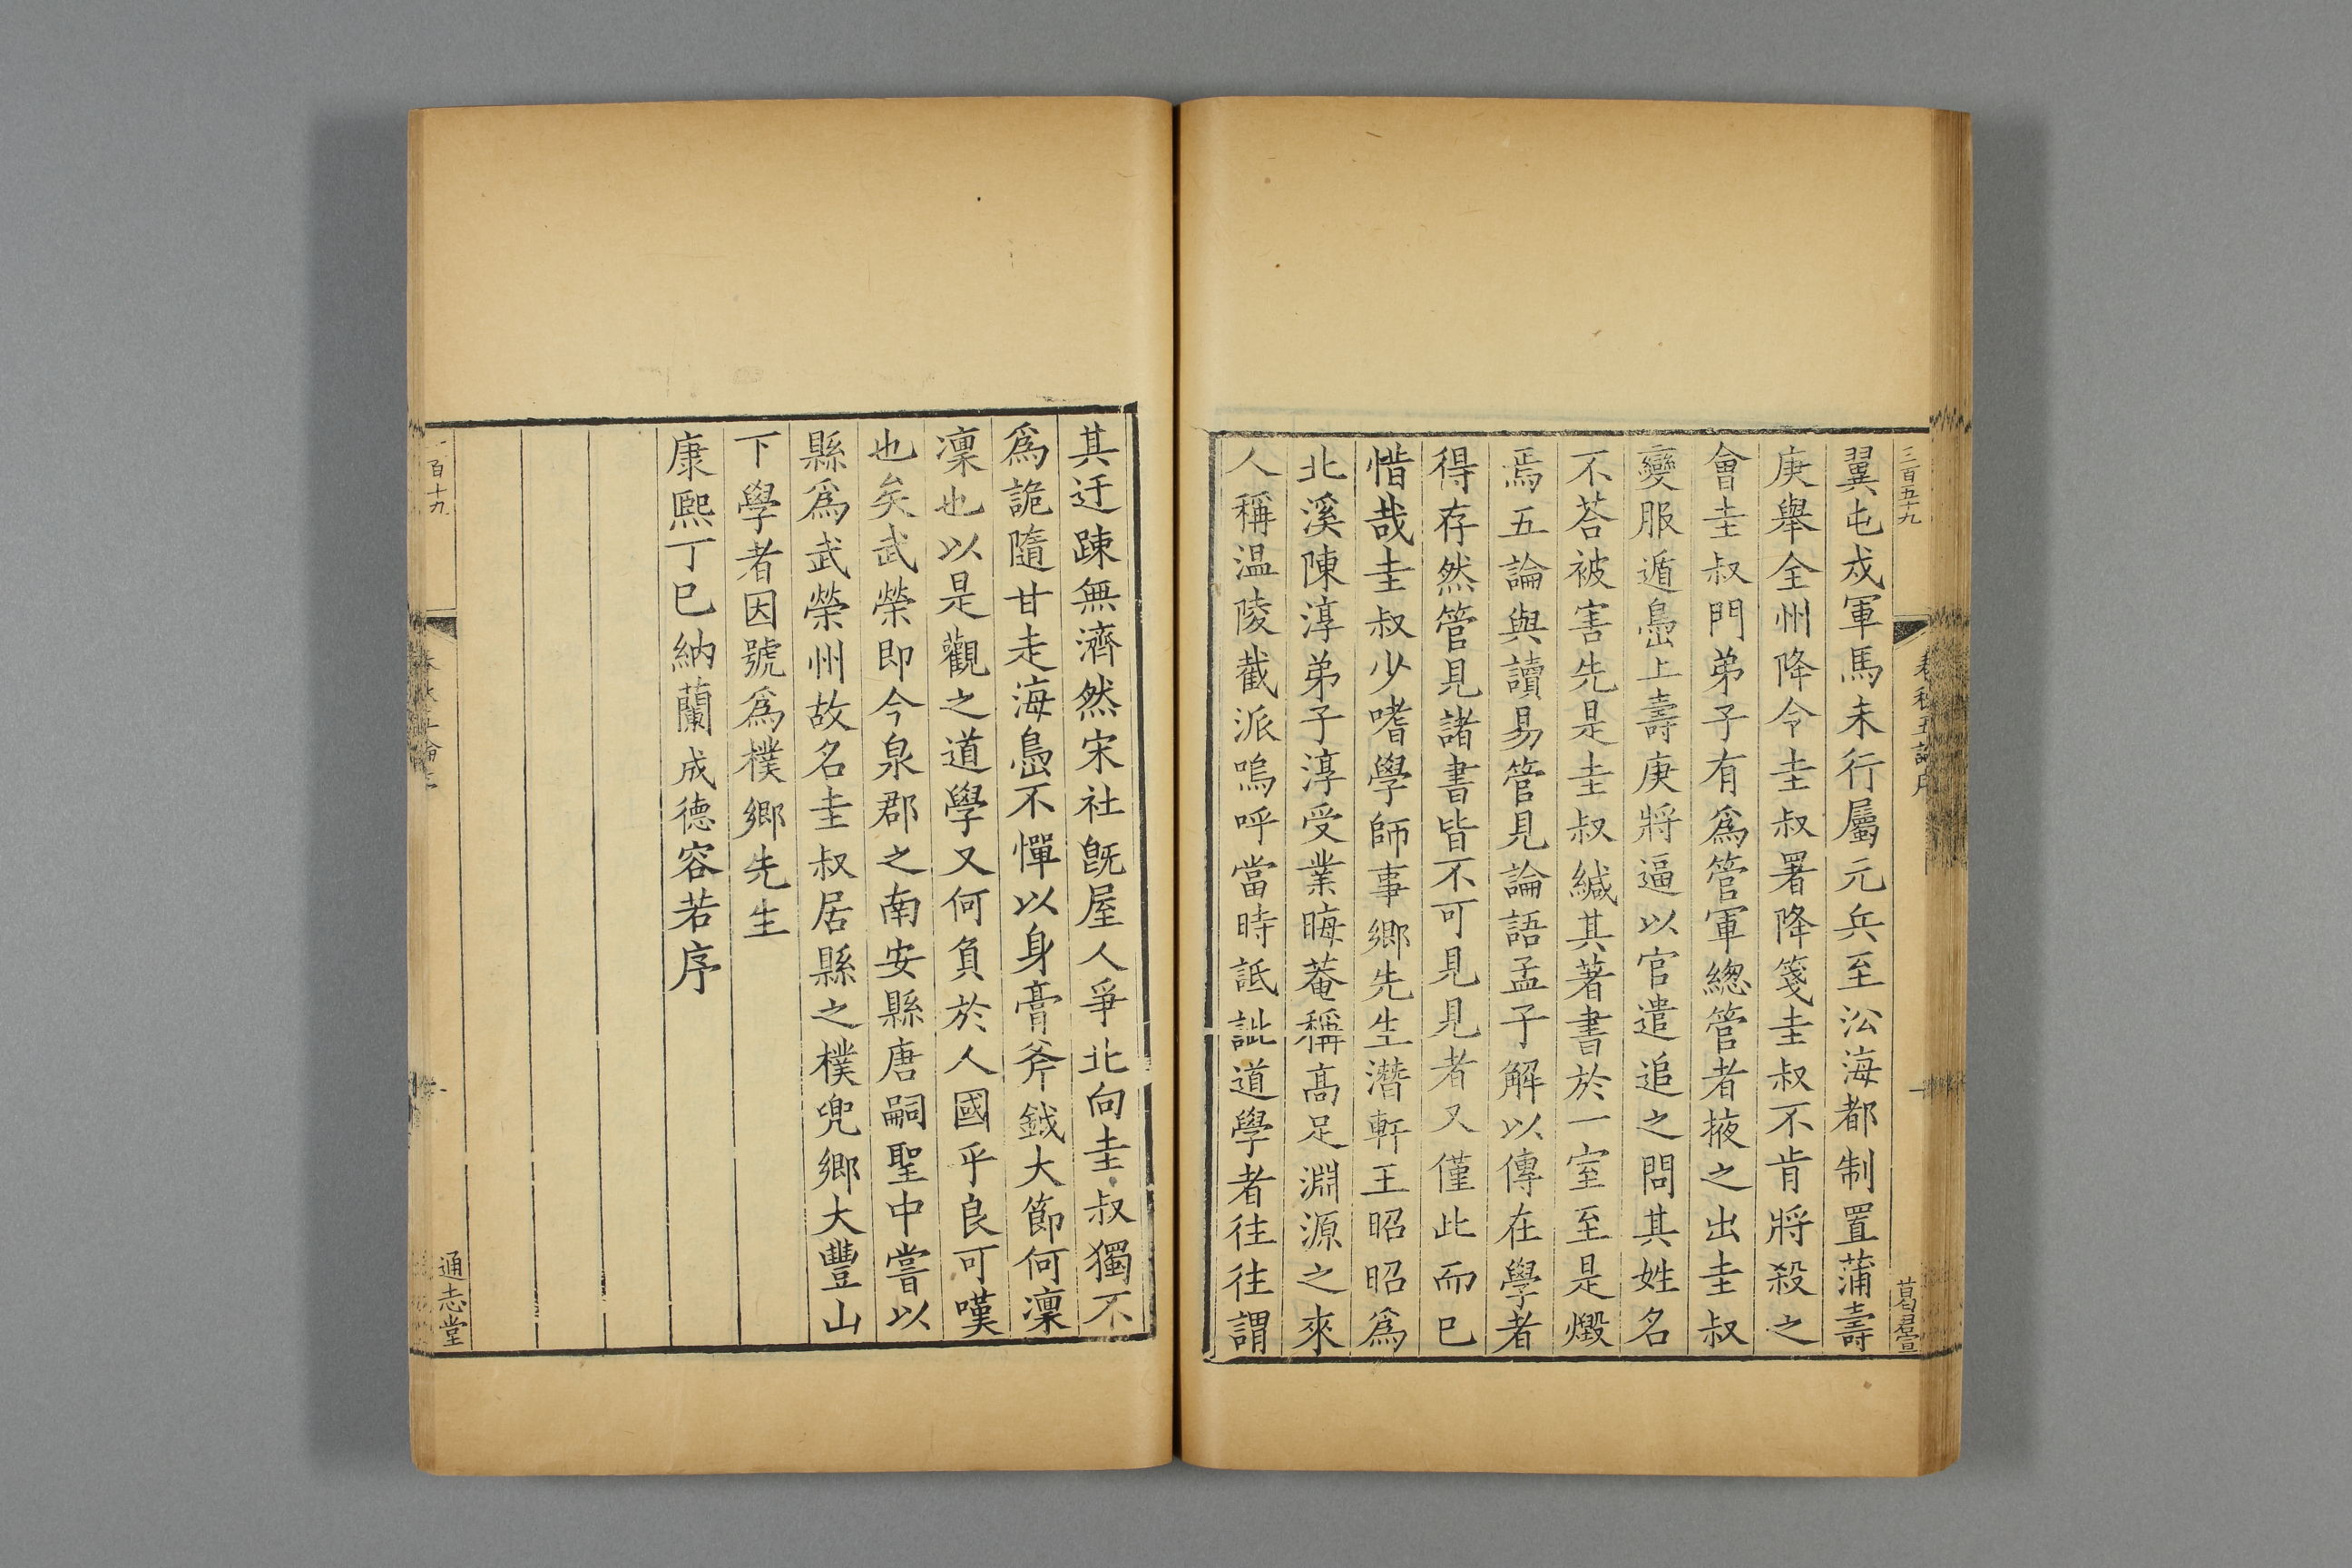 三百五十九
春秋五論序
一
葛君宣
翼屯戍軍馬未行屬元兵至㳂海都制置蒲壽
庚舉全州降令圭叔署降箋圭叔不肯將殺之
會圭叔門弟子有爲管軍總管者掖之出圭叔
變服遁㠀上壽庚將逼以官遣追之問其姓名
不荅被害先是圭叔緘其著書於一室至是燬
焉五論與讀易管見論語孟子解以傳在學者
得存然管見諸書皆不可見見者又僅此而已
惜哉圭叔少嗜學師事鄉先生潛軒王昭昭爲
北溪陳淳弟子淳受業晦菴稱高足淵源之來
人稱温陵截派嗚呼當時詆訿道學者往往謂
其迂踈無濟然宋社旣屋人爭北向圭叔獨不
爲詭隨甘走海㠀不憚以身膏斧鉞大節何凜
凜也以是觀之道學又何負於人國乎良可嘆
也矣武榮即今泉郡之南安縣唐嗣聖中嘗以
縣爲武榮州故名圭叔居縣之樸兜鄉大豐山
下學者因號爲樸鄉先生
康熙丁巳納蘭成德容若序
一百十九
通志堂